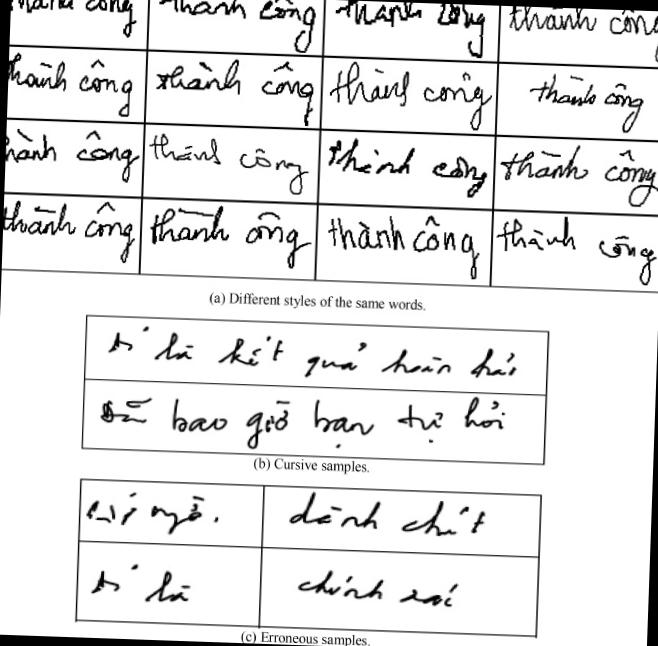 thành công thành công thành công thành công
thành công thành công thành công thành công
thành công thành công thành công thành công
thành công thành công thành công thành công
(a) Different styles of the same words.
là kết quả hoàn hảo
bao giờ bạn tự hỏi
(b) Cursive samples.
ngõ. dành chút
là chính xác
(c) Erroneous samples.